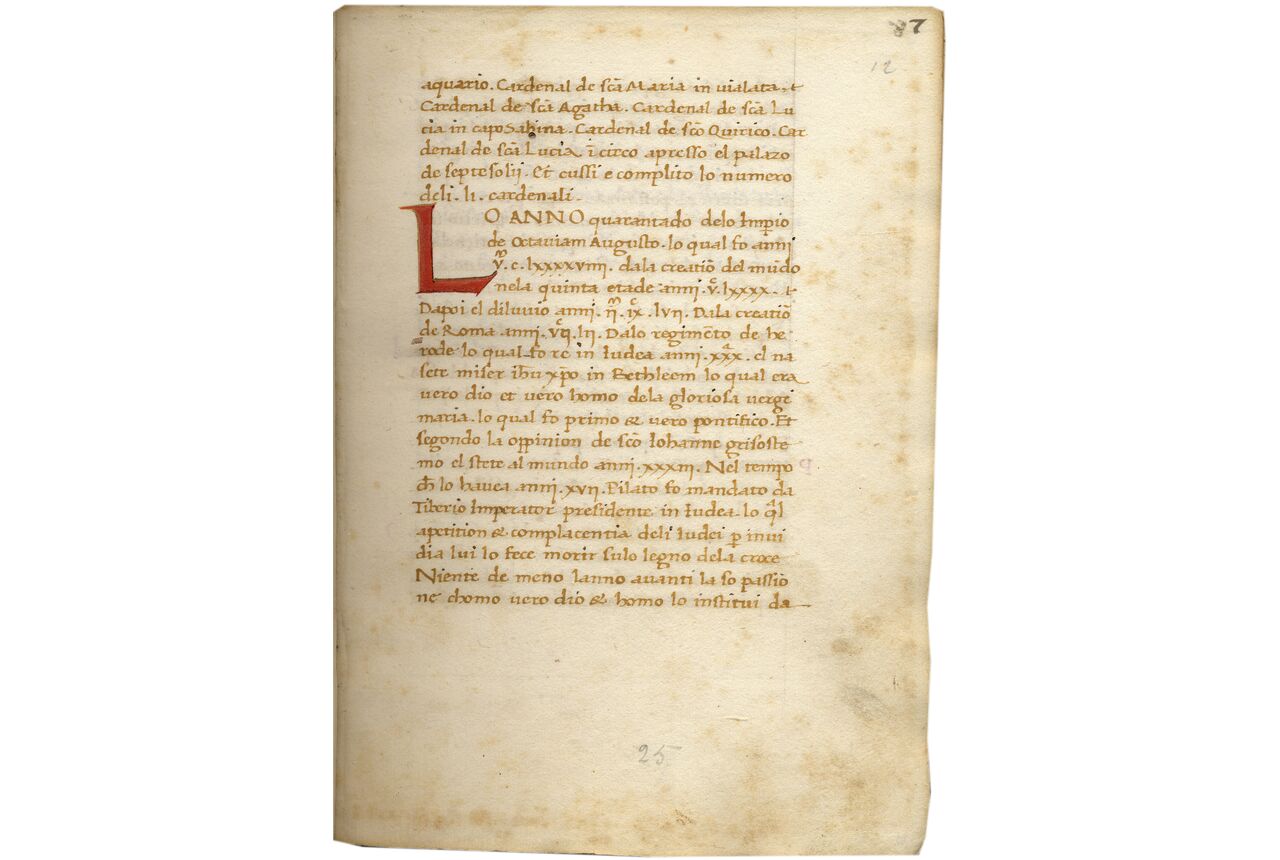 7
12
aquario. Cardenal de scā Maria in vialata. et
Cardenal de scā Agatha. Cardenal de scā Lu
cia in capo Sabina. Cardenal de scō Quirico. Car
denal de scā Lucia ī circo apresso el palazo
de septesolij. Et cussi e complito lo numero
deli. li. cardenali.
LO ANNO quarantado delo Imp̄io
de Octauiam Augusto. lo qual fo anni
v̄. c. lxxxxviiij. dala creatiō del mūdo
nela quinta etade anni. v. lxxxx. et
Dapoi el diluuio anni. ij. ix. lvij. Dala creatiō
de Roma anni. vij. lij. Dalo regimēto de he
rode lo qual fo re in Iudea anni. xxx. el na
sete miser ihū xp̄o in Bethleem lo qual era
vero dio et vero homo dela gloriosa vergē
maria. lo qual fo primo & vero pontifico. Et
segondo la oppinion de scō Iohanne grisoste
mo el stete al mundo anni. xxxiij. Nel tempo
ch̄ lo hauea anni. xvij. Pilato fo mandato da
Tiberio Imperator presidente in Iudea. lo q̄l
apetition & complacentia deli Iudei p̄ inui
dia lui lo fece morir sulo legno dela croce
Niente de meno lanno auanti la so passiō
ne chomo uero dio & homo lo institui da
25